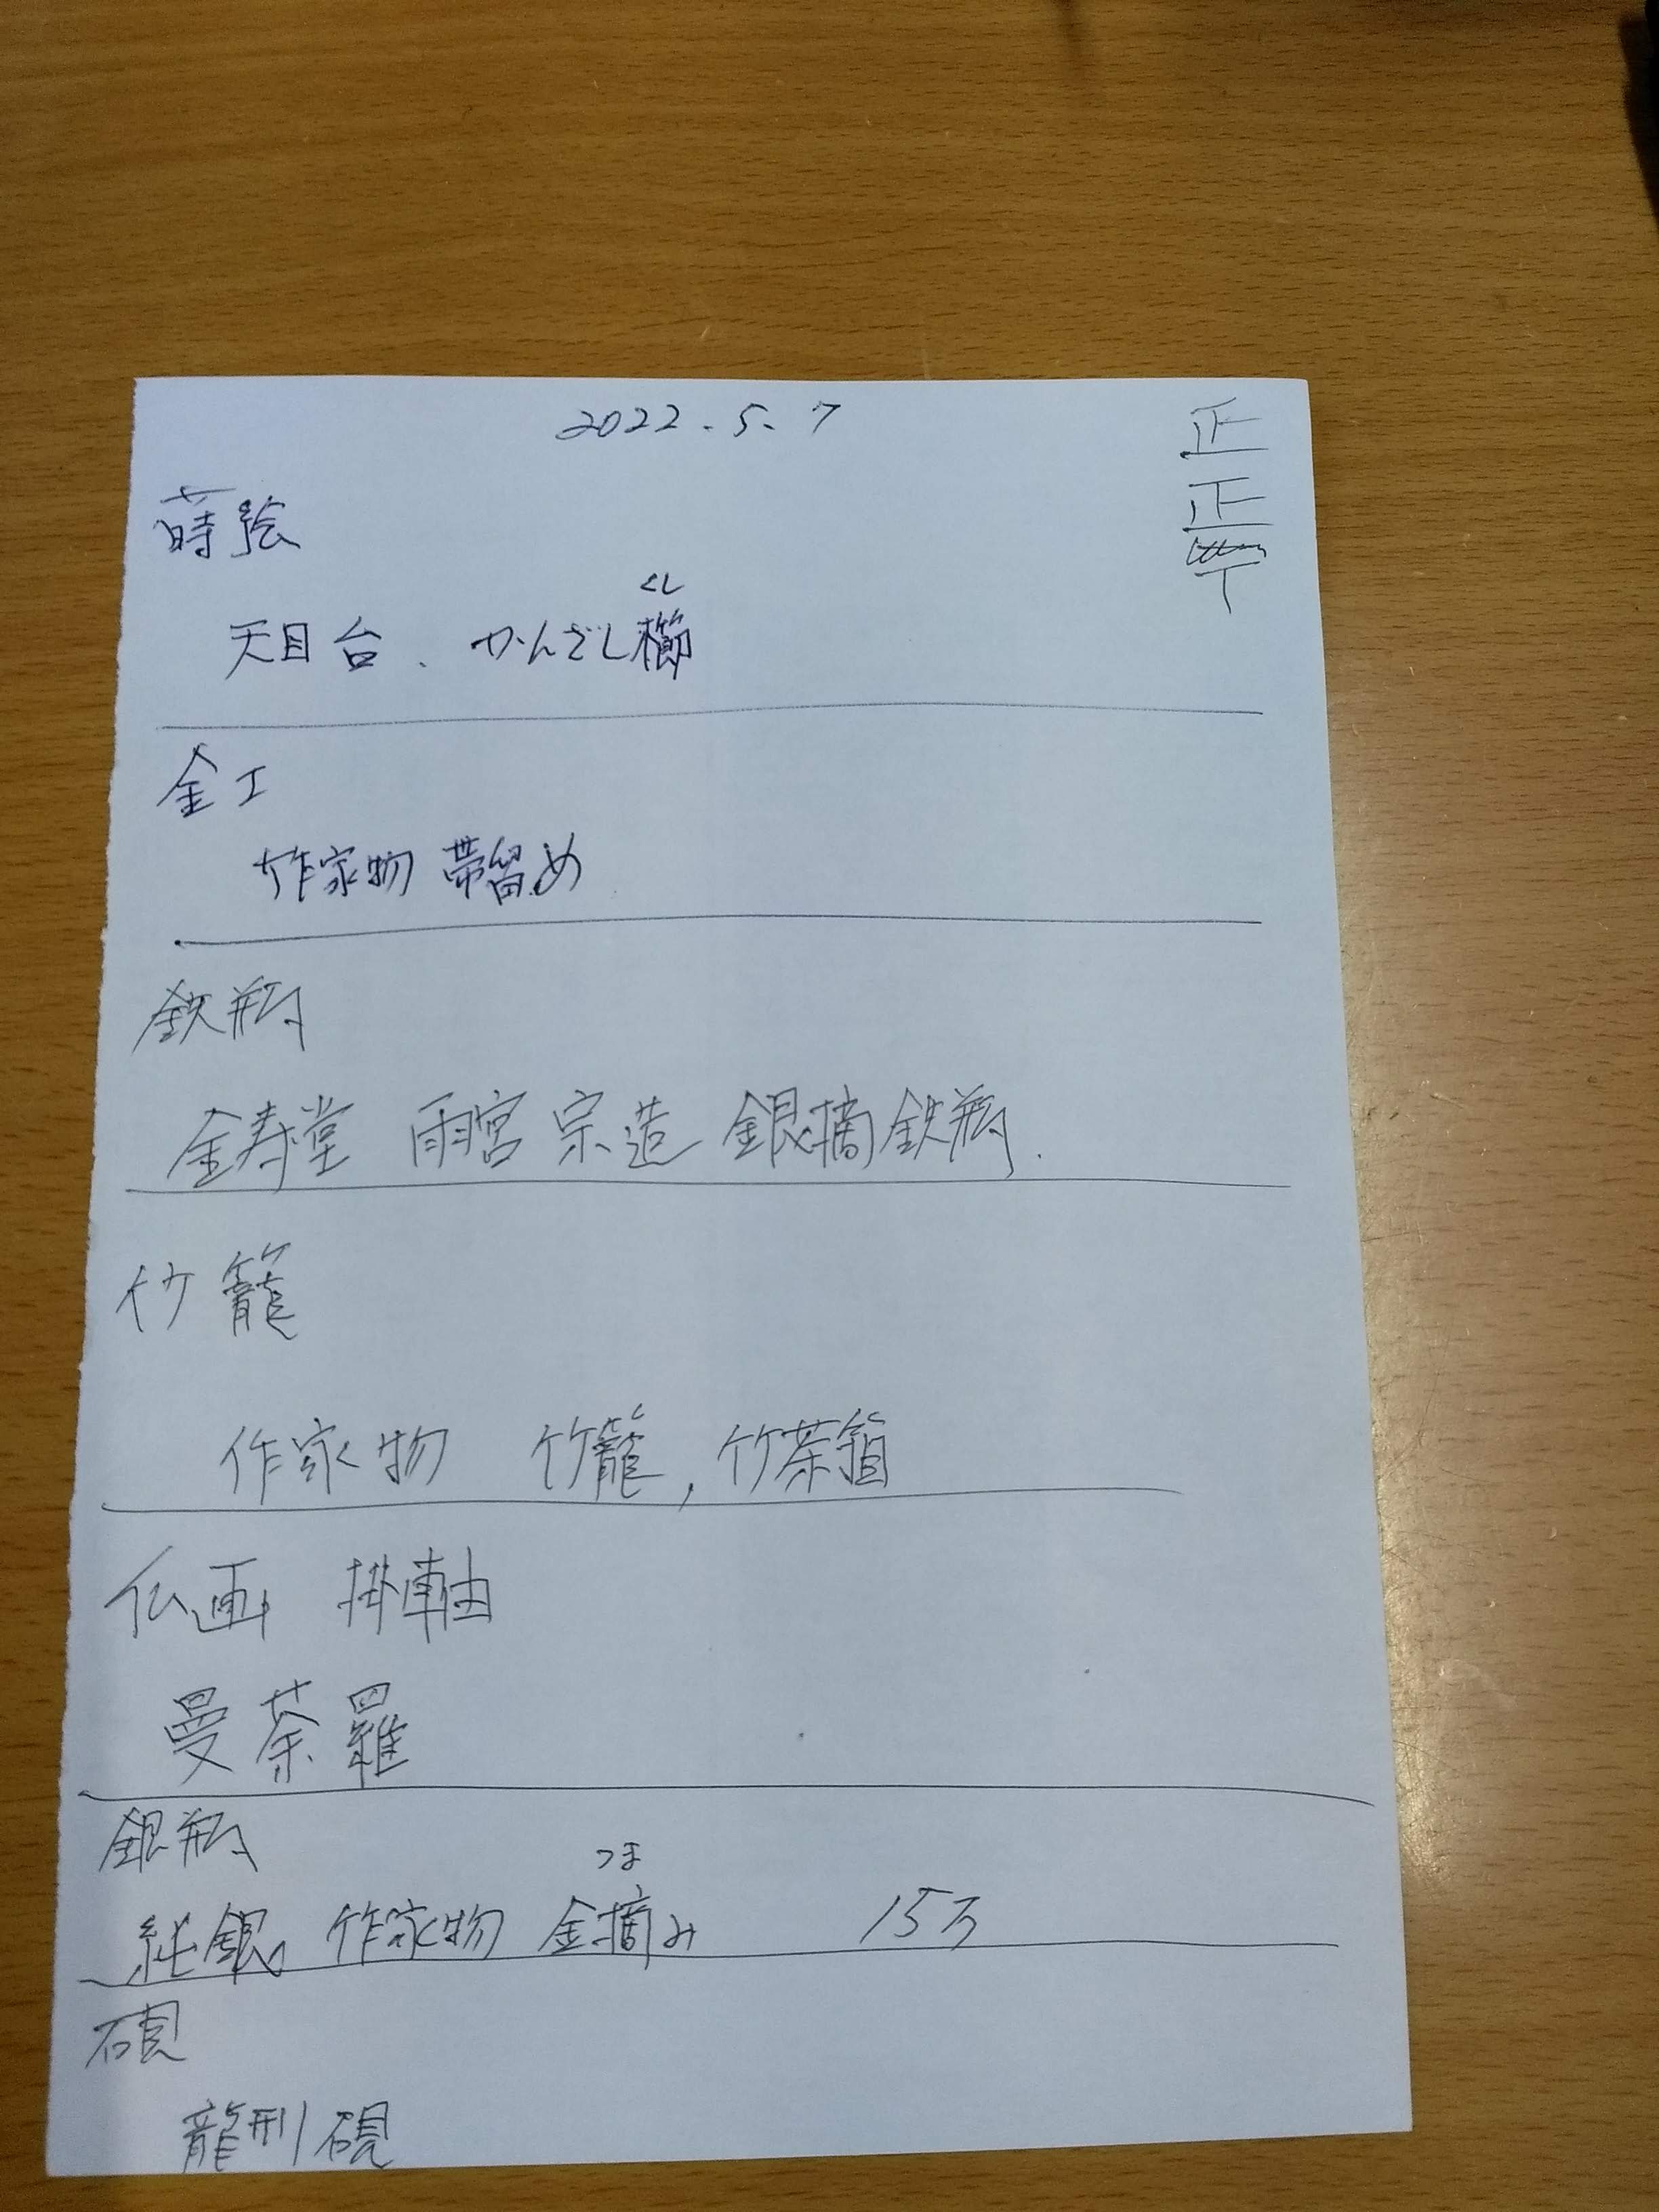 2022.5.7
正
正
T
蒔絵
くし
天目台、かんざし櫛
金工
作家物 帯留め
鉄瓶
金寿堂 雨宮宗造 銀摘鉄瓶.
竹籠
作家物 竹籠,竹茶箱
仏画 掛軸
曼荼羅
銀瓶
つま
純銀。作家物 金摘み 15万
硯
龍形硯